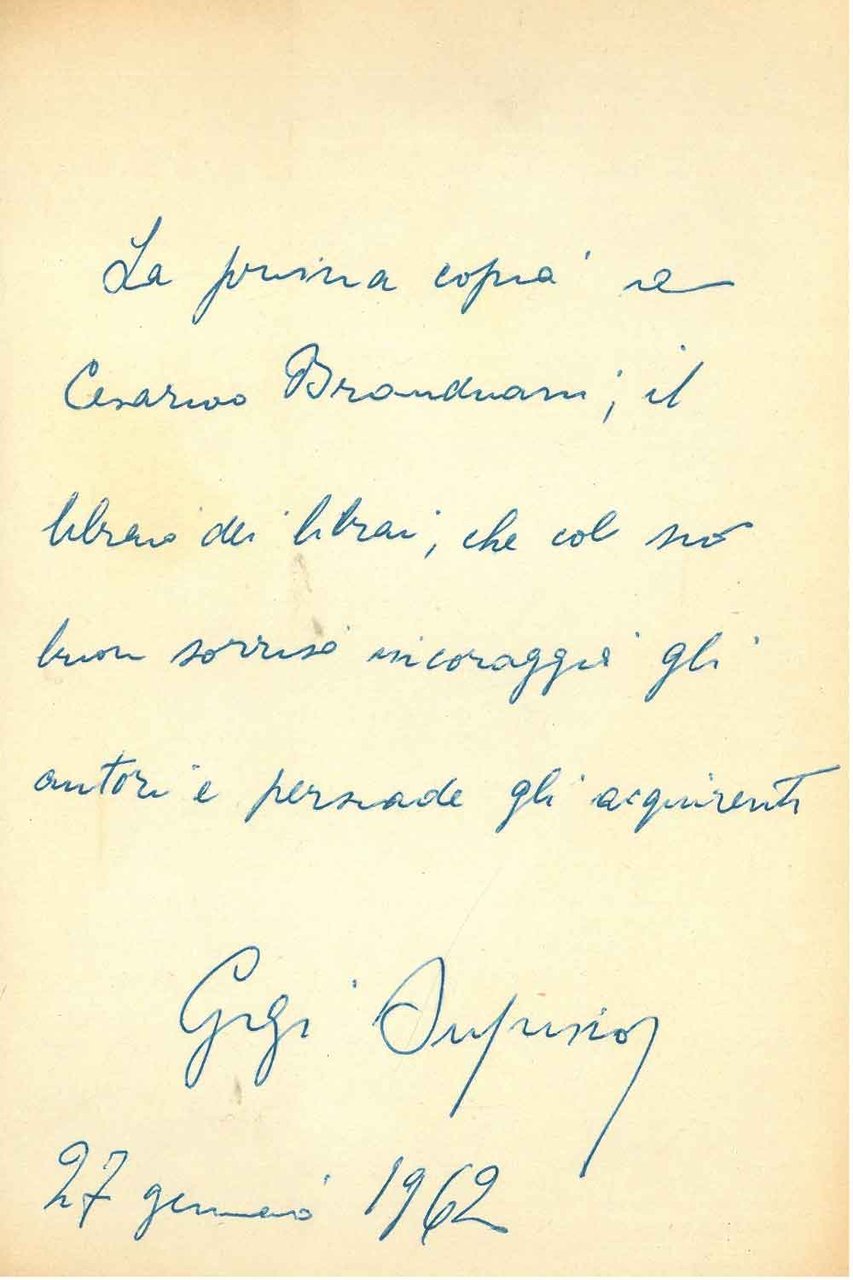 La prima copia a
Cesarino Branduani, il
libraio dei librai, che col suo
buon sorriso incoraggia gli
autori e persuade gli acquirenti
Gigi Supino
27 gennaio 1962